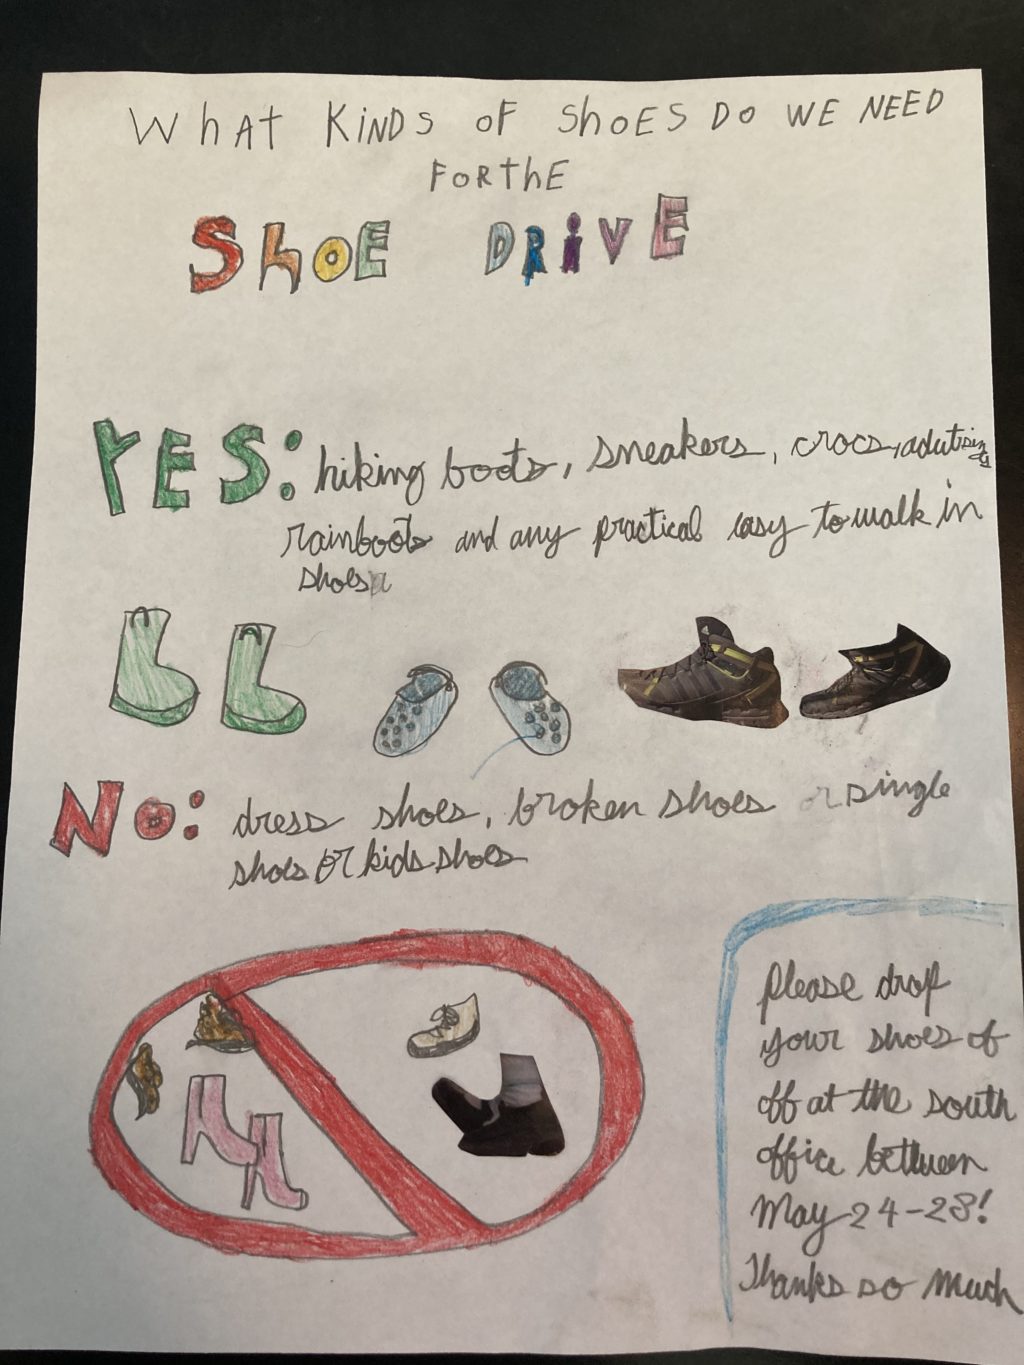 WhAT KiNDS oF ShoES Do WE NEED
FoRThE
ShoE DRiVE
YES: hiking boots, sneakers, crocs,
rainboots and any practical easy to walk in
shoes
No: dress shoes, broken shoes or single
shoes or kids shoes
please drop
your shoes of
off at the south
office between
May 24-28!
Thanks so much